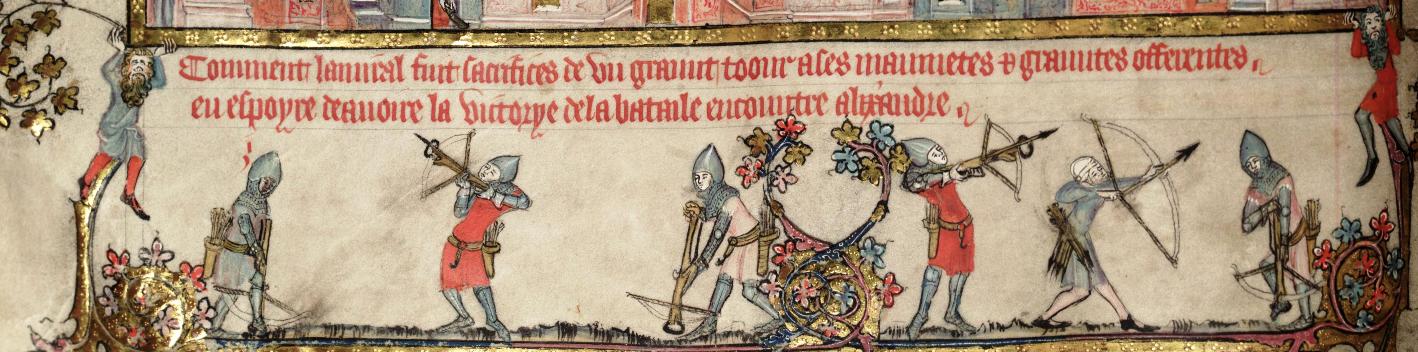 Comment lamiral fait sacrifices de vn grant toour a ses maumetes & grantes offerentes
en espoyre de auoire la victorye de la bataile encountre alixandre